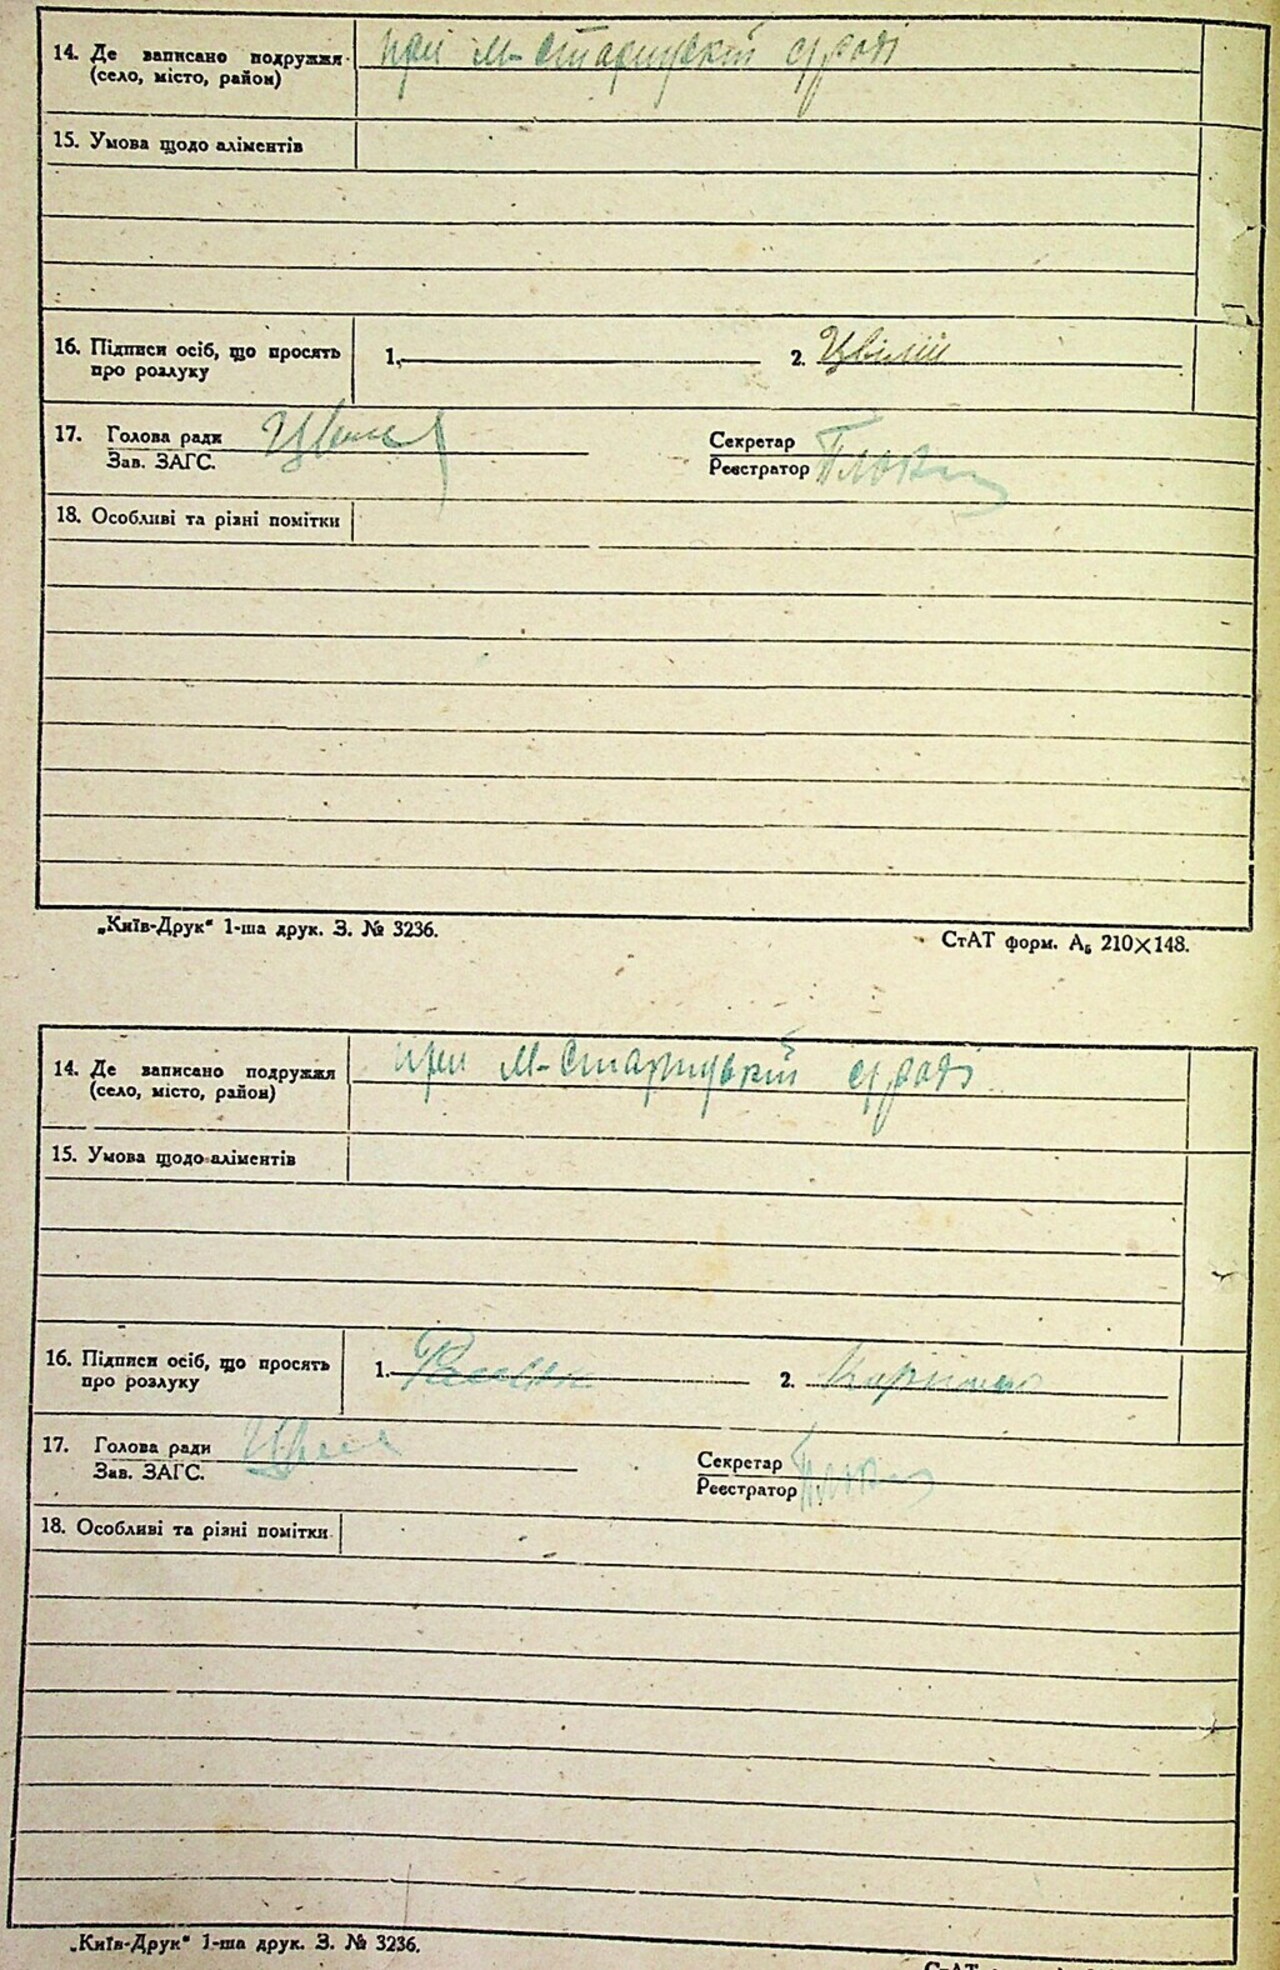 14. Де записано подружжя
(село, місто, район)
при М-Старицькій с/раді
15. Умова щодо аліментів
16. Підписи осіб, що просять
про розлуку
1. 2.
17. Голова ради
Зав. ЗАГС.
Секретар
Реєстратор
18. Особливі та різні помітки
„Київ-Друк“ 1-ша друк. З. № 3236.
СтАТ форм. А₅ 210×148.
14. Де записано подружжя
(село, місто, район)
при М-Старицькій с/раді
15. Умова щодо аліментів
16. Підписи осіб, що просять
про розлуку
1. 2.
17. Голова ради
Зав. ЗАГС.
Секретар
Реєстратор
18. Особливі та різні помітки
„Київ-Друк“ 1-ша друк. З. № 3236.